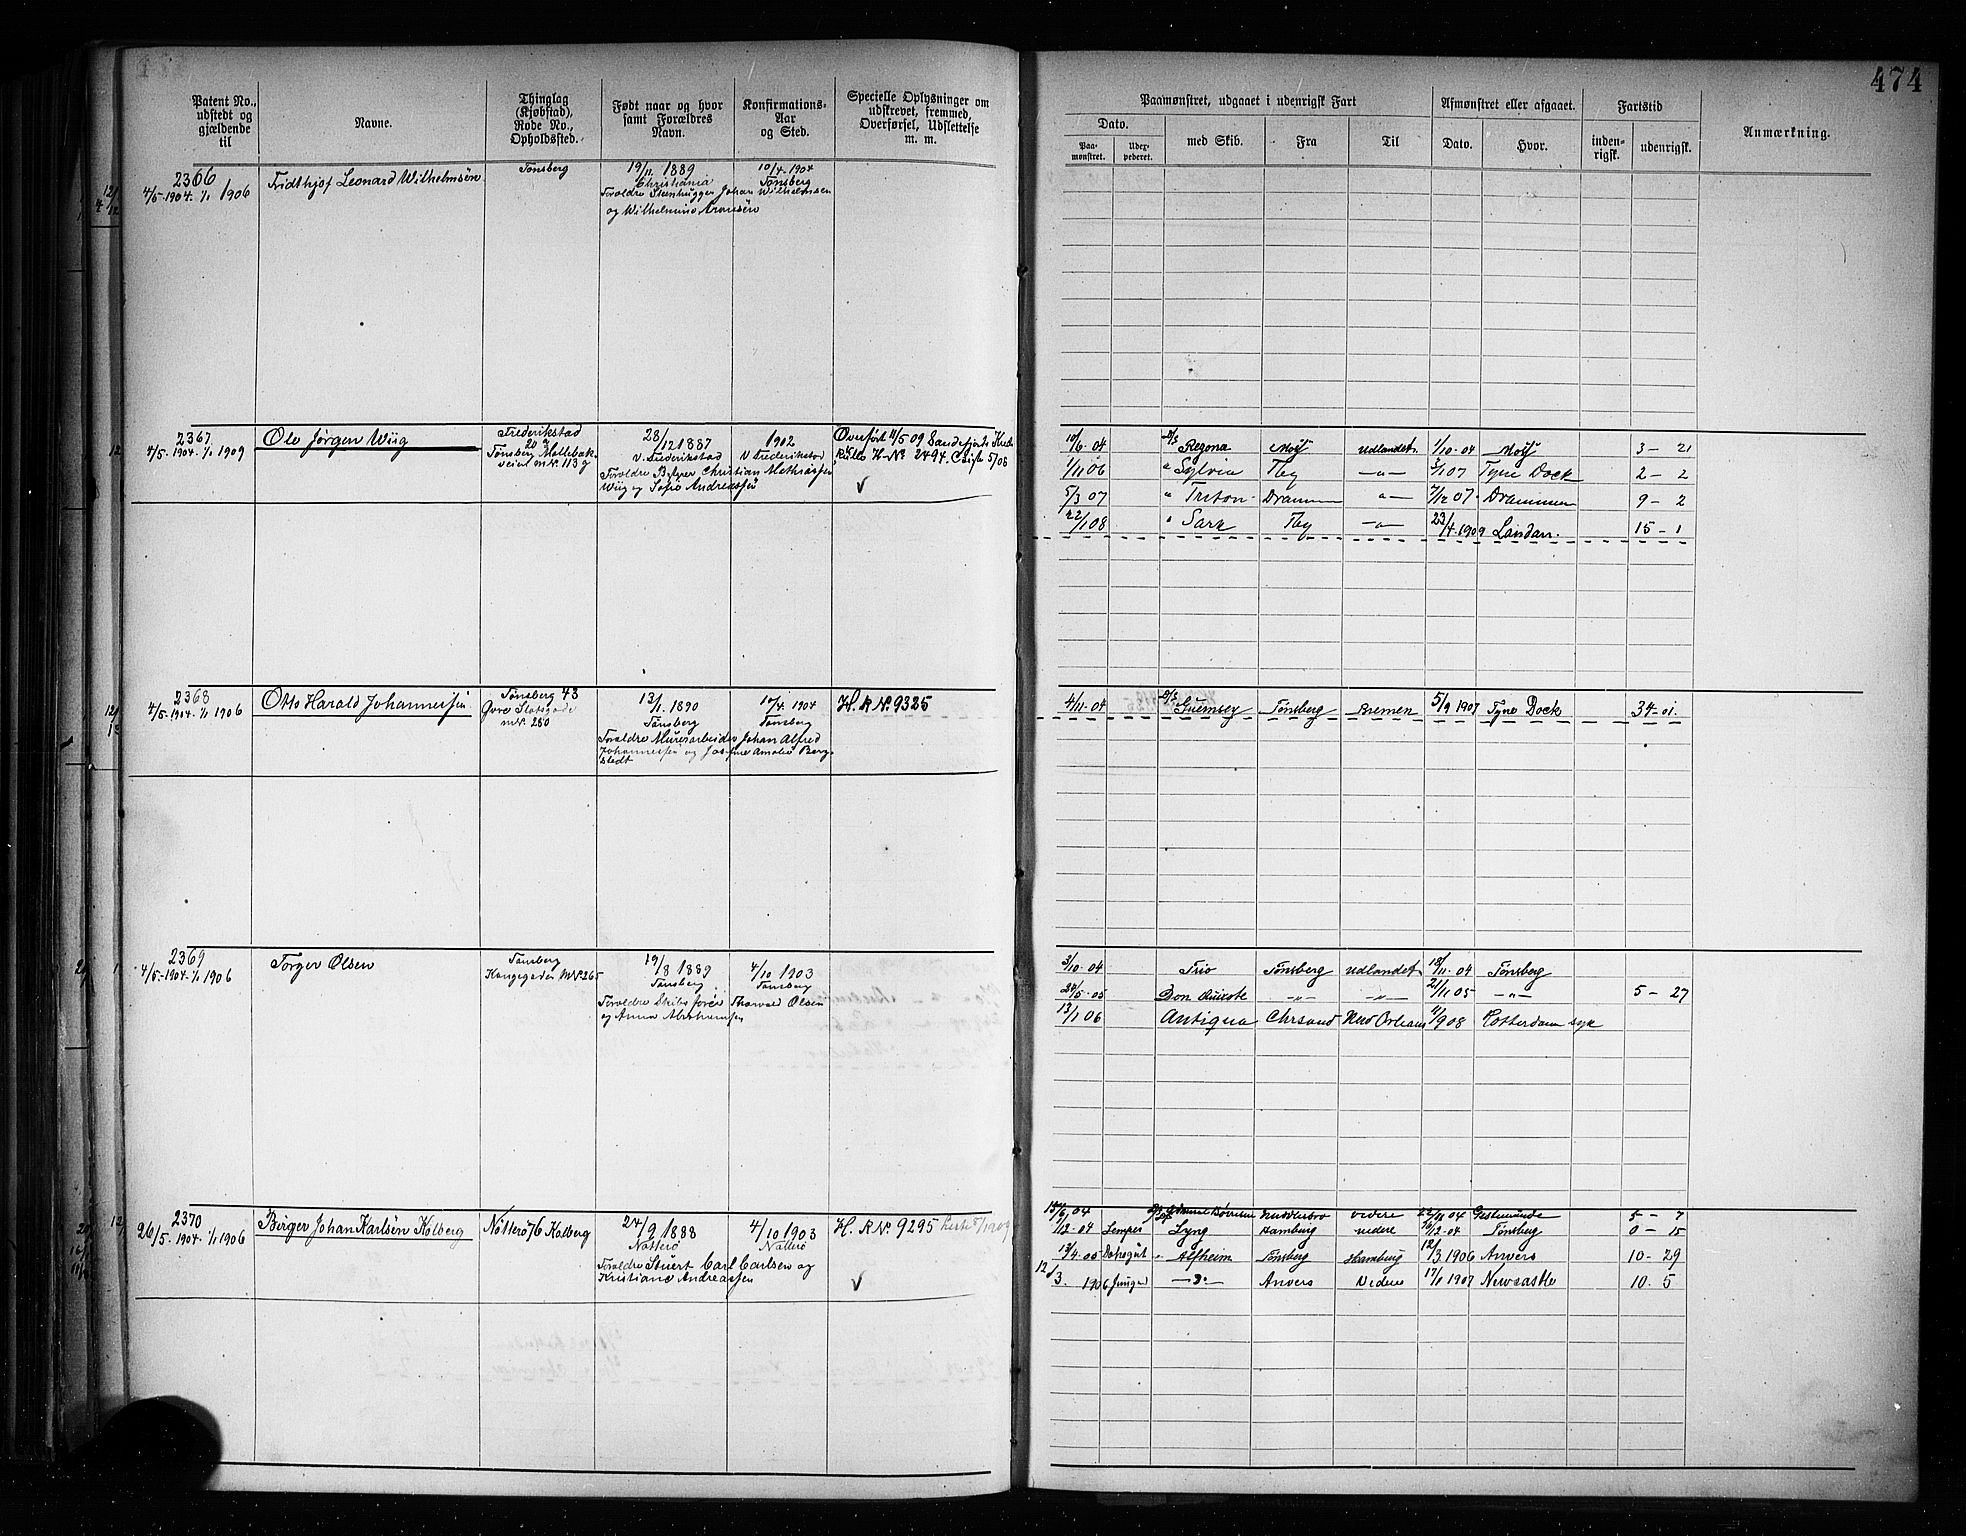 474
Patent No., udstedt og gjældende til
Navne.
Thinglag (Kjøbstad), Rode No., Opholdssted.
Født naar og hvor samt Forældres Navn.
Konfirmations-Aar og Sted.
Specielle Oplysninger om udskrevet, fremmed, Overførsel, Udslettelse m. m.
Paamønstret, udgaaet i udenrigsk Fart
Afmønstret eller afgaaet.
Fartstid
Anmærkning.
Dato.
Paa-mønstret.
Udex-pederet.
med Skib.
Fra
Til
Dato.
Hvor.
inden-rigsk.
udenrigsk.
2366
4/5-1904. 1/1 1906
Fridthjof Leonard Wilhelmsen
Tønsberg
19/11 1889
Christiania
Foreldre Stenhugger Johan Wilhelmsen
og Wilhelmine Aronsen
10/4 1904
Tønsberg
2367
4/5-1904. 1/1 1909
Ole Jørgen Wiig
Frederikstad
20
Tønsberg Møllebak-
veien mN. 113 g
28/12 1887
v. Frederikstad
Foreldre Bykjer Christian Mathiassen
Wiig og Sofie Andreassen
1902
v Frederikstad
Overført 11/5 09 Sandefjords
Rulle H-No 2494.
10/6-04 Regona Moss Udlandet 1/10-04 Moss 3 - 21
1/11 06 " Sylvia Tbg -"- 2/1 07 Tyne Dock 2 - 2
5/3 07 " Triton Dramm -"- 7/12 07 Drammen 9 - 2
22/1 08 " Sark Tbg -"- 23/4-1909 15 - 1
2368
4/5-1904-1/1 1906
Otto Harald Johannessen
Tønsberg 43
Øvre Slotsgade
mN. 250
13/1 1890
Tønsberg
Foreldre Murerarbeider Johan Alfred
Johannessen og Josefine Amalie Berg-
stedt
10/4 1904
Tønsberg
H. R No. 9325
4/11-04 D/S Guernsey Tønsberg Bremen 5/9 1907 Tyne Dock 34-01.
2369
4/5-1904-1/1 1906
Torger Olsen
Tønsberg
Kongegaden mN. 265
19/8 1889
Tønsberg
Foreldre Skibsfører Thorvald Olsen
og Anna Abrahamsen
4/10 1903
Tønsberg
3/10-04 Trio Tønsberg Udlandet 18/11-04 Tønsberg
24/5-05 Don Quixote -"- -"- 21/11 05 -"- 5 - 27
13/1 06 Antiqua Chrsand New Orleans 11/9 08 Rotterdam syk
2370
26/5-1904-1/1 1906
Birger Johan Karlsen Kolberg
Nøtterø 76 Kolberg
24/9 1888
Nøtterø
Foreldre Stuert Carl Carlsen og
Kristiane Andreassen
4/10 1903
Nøtterø
H. R No. 9295
15/6 04 videre 22/11 04 Gestemünde 5 - 7
1/12-04 Lyng Hamburg videre 16/12-04 Tønsberg 0 - 15
13/4-05 " Alfheim Tønsberg Hamburg 12/3 1906 Anvers 10 - 29
12/3. 1906 Jungm -"- Anvers Videre 17/1 1907 Newcastle 10. 5